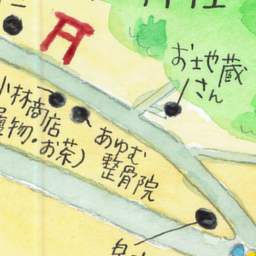 お地蔵
さん
小林商店
物・お茶)
あゆむ
整骨院